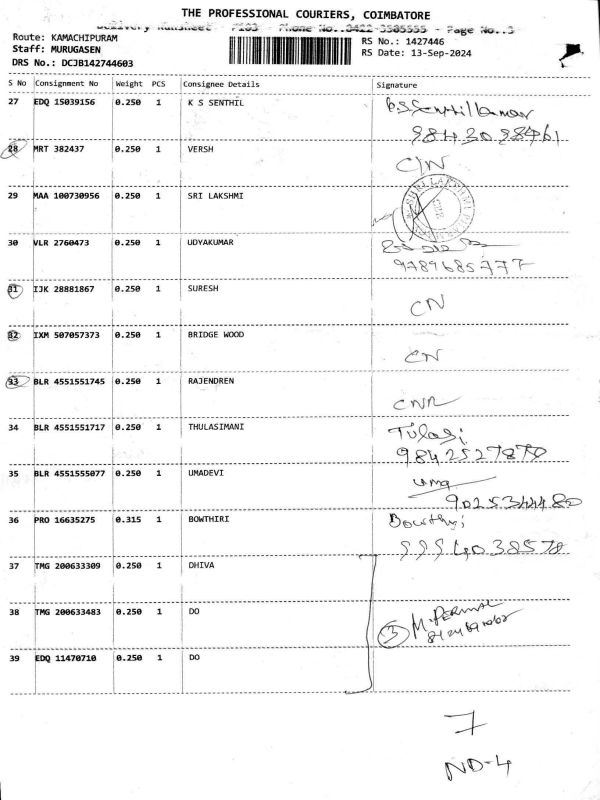 THE PROFESSIONAL COURIERS, COIMBATORE
Delivery Runsheet - P103 - Phone No.:0422-3505555 - Page No.:3
Route: KAMACHIPURAM
RS No.: 1427446
Staff: MURUGASEN
RS Date: 13-Sep-2024
DRS No.: DCJB142744603
S No Consignment No Weight PCS Consignee Details Signature
27 EDQ 15039156 0.250 1 K S SENTHIL K.S.Senthil kumar
28 MRT 382437 0.250 1 VERSH C/N
29 MAA 100730956 0.250 1 SRI LAKSHMI
30 VLR 2760473 0.250 1 UDYAKUMAR
9789685777
31 IJK 28881867 0.250 1 SURESH CN
32 IXM 507057373 0.250 1 BRIDGE WOOD CN
33 BLR 4551551745 0.250 1 RAJENDREN CNR
34 BLR 4551551717 0.250 1 THULASIMANI Tulasi
9842527870
35 BLR 4551555077 0.250 1 UMADEVI uma
9025344480
36 PRO 16635275 0.315 1 BOWTHIRI Bowthri
9994038578
37 TMG 200633309 0.250 1 DHIVA
38 TMG 200633483 0.250 1 DO 3 M.PERUMAL
39 EDQ 11470710 0.250 1 DO
7
ND-4